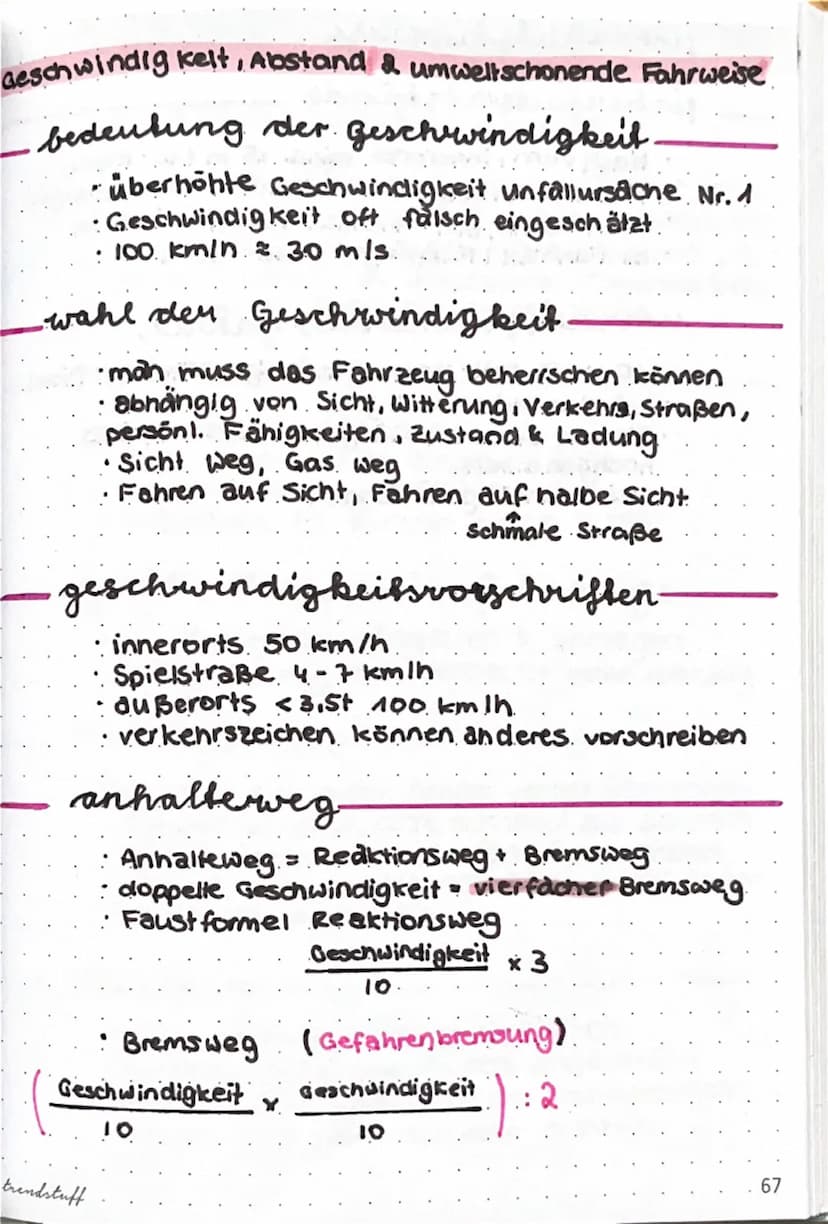 Geschwindigkeit, Abstand & umweltschonende Fahrweise
bedeutung der geschwindigkeit
· überhöhte Geschwindigkeit unfallursache Nr. 1
· Geschwindigkeit oft falsch eingeschätzt
· 100 km/h ≈ 30 m/s
wahl der Geschwindigkeit
· man muss das Fahrzeug beherrschen können
· abhängig von Sicht, Witterung, Verkehrs, Straßen,
persönl. Fähigkeiten, Zustand & Ladung
· Sicht weg, Gas weg
· Fahren auf Sicht, Fahren auf halbe Sicht
↑
schmale Straße
geschwindigkeitsvorschriften
· innerorts 50 km/h
· Spielstraße 4-7 km/h
· außerorts <3,5t 100 km/h
· verkehrszeichen können anderes vorschreiben
anhalteweg
· Anhalteweg = Reaktionsweg + Bremsweg
· doppelte Geschwindigkeit = vierfacher Bremsweg
· Faustformel Reaktionsweg
Geschwindigkeit x 3
10
· Bremsweg (Gefahrenbremsung)
(Geschwindigkeit x Geschwindigkeit) : 2
10 10
trendstuff 67